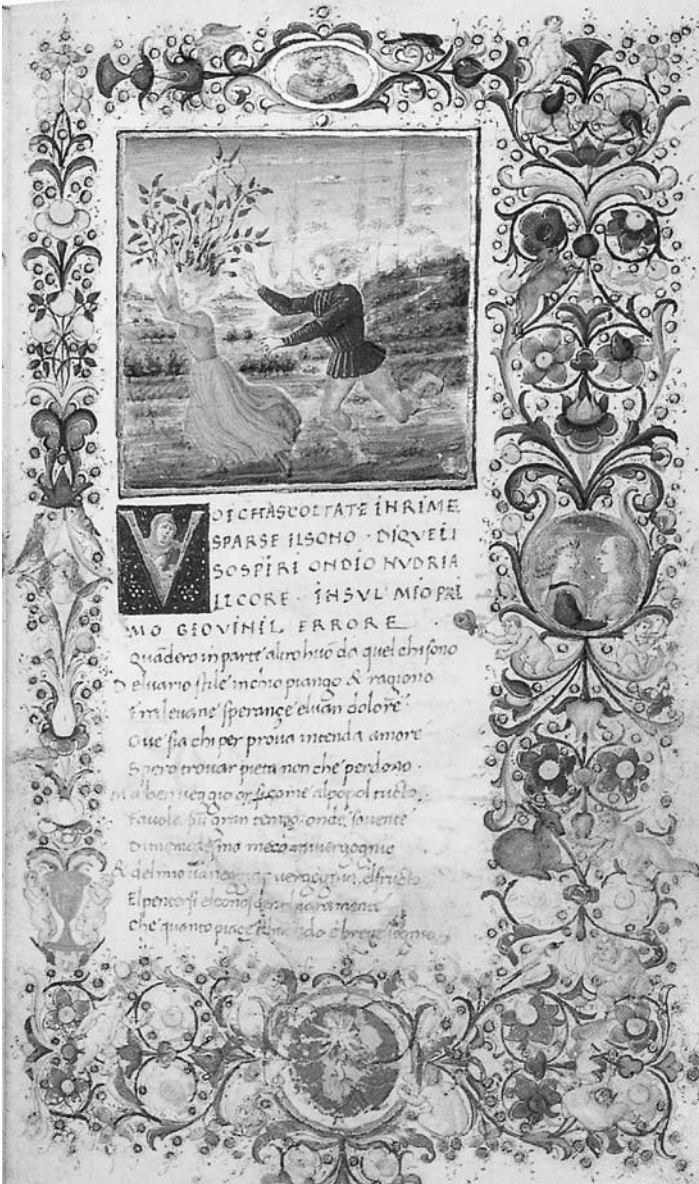 VOI CHASCOLTATE INRIME
SPARSE ILSONO · DIQUELI
SOSPIRI ONDIO NUDRIA
ILCORE · INSUL MIO PRI
MO GIOVINIL ERRORE
Quādero in parte altro huō da quel chi sono
Del uario stile inchio piango & ragiono
Fra leuane sperançe eluan dolore
Oue sia chi per proua intenda amore
Spero trouar pieta non che perdono ·
Ma ben ueggio or si come alpopol tucto
fauola fui gran tempo · onde souente
Di me medesmo meco mi uergogno
& del mio uergogna elfructo
Elpentersi elconoscer chiaramente
Che quanto piace breue sogno